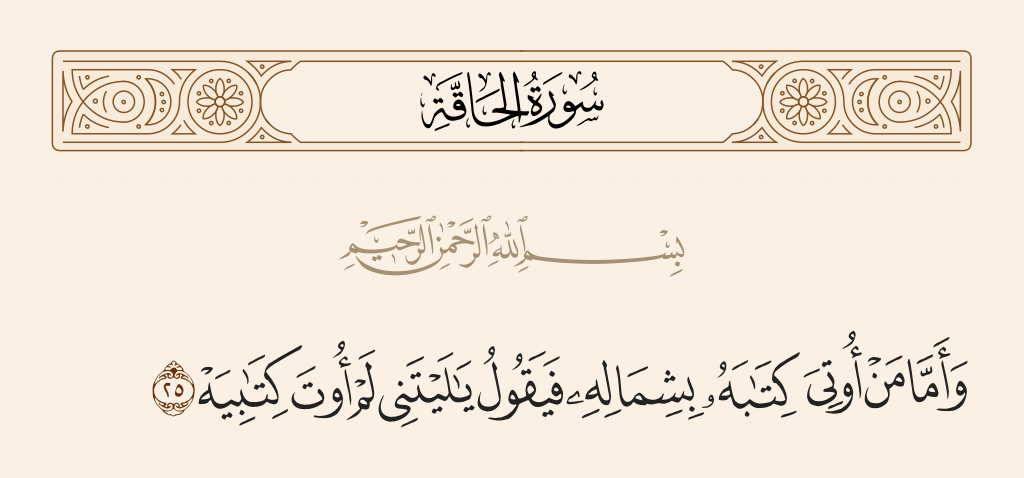 سُورَةُ الحَاقَّةِ
بِسْمِ ٱللَّهِ ٱلرَّحْمَٰنِ ٱلرَّحِيمِ
وَأَمَّا مَنْ أُوتِىَ كِتَـٰبَهُۥ بِشِمَالِهِۦ فَيَقُولُ يَـٰلَيْتَنِى لَمْ أُوتَ كِتَـٰبِيَهْ ٢٥